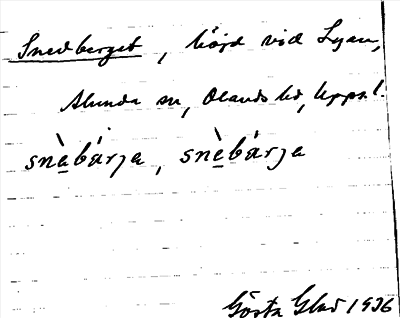 Snedberget, höjd vid Lyan,
Alunda sn, Olands hd, Upps. l.
snèbárja, snèbárja
Gösta Glad 1936